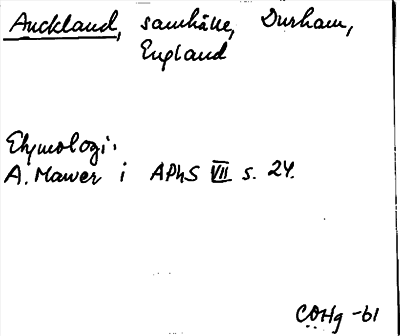 Auckland, samhälle, Durham,
England
Etymologi:
A. Mawer i APhS VII s. 24.
COHg -61